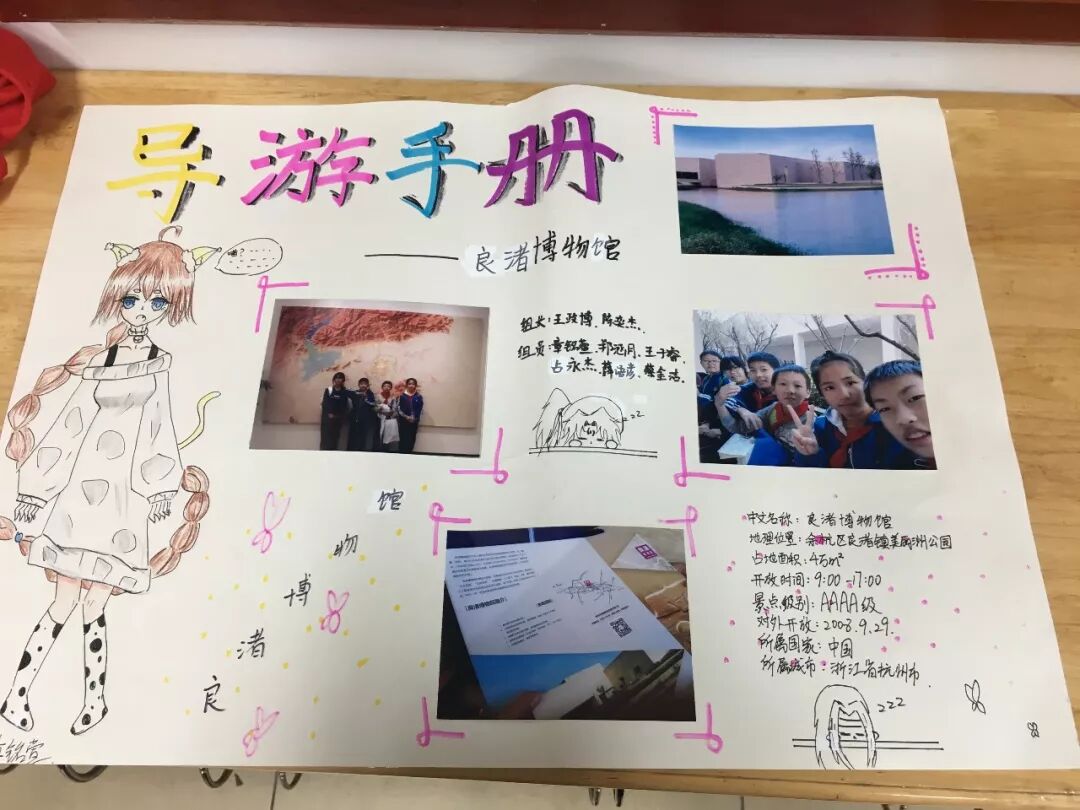 导游手册
——良渚博物馆
组长:王政博、陈奕杰、
组员:章铭萱、郑冠月、王子睿、
占永杰、薛语彦、蔡金浩、
zzz
良渚博物馆
中文名称:良渚博物馆
地理位置:余杭区良渚镇美丽洲公园
占地面积:4万m²
开放时间:9:00-17:00
景点级别:AAAA级
对外开放:2008.9.29.
所属国家:中国
所属城市:浙江省杭州市.
zzz